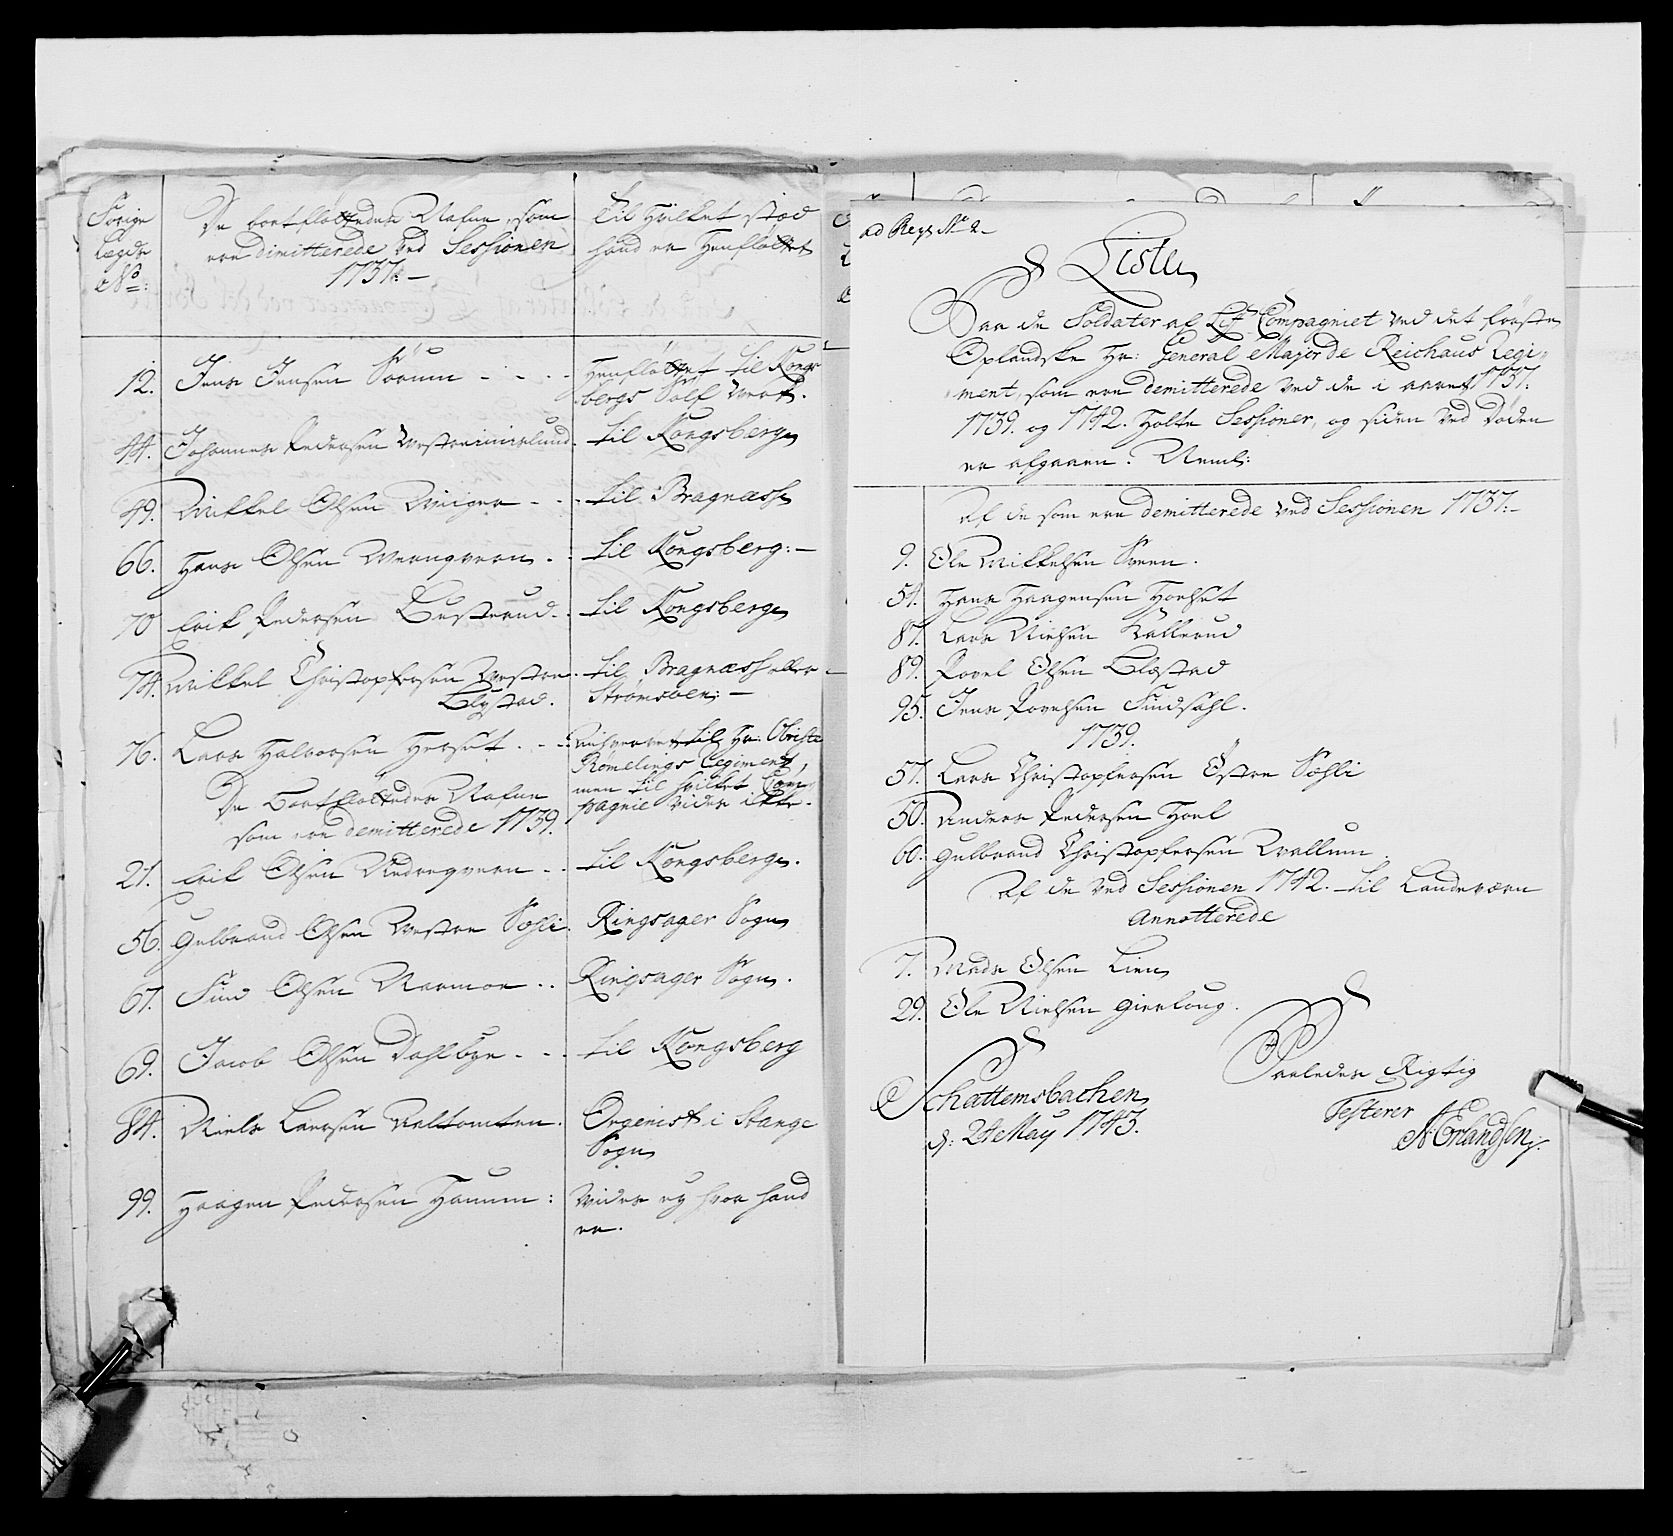 Forige
Lægds
No:
De bortfløttedes Nafne, som
ere dimitterede ved Sessionen
1737.
Til hvilket stæd
hand er henfløttet
12. Jens Jensen Sørum - - -
henfløttet til Kongs
bergs Sølf Werk.
44. Johannes Pedersen
til Kongsberg
49. Mikkel Olsen - - -
til Bragnæss
66. Hans Olsen -
til Kongsberg:
70 Erik Pedersen Busterud -
til Kongsberg
74. Mikkel Christophersen Westre
Blystad.
til Bragnæss eller
Strømsøen:
76. Lars Halvorsen Hersæt - -
til Hr: Obriste
Rømelings Regiment,
men til hvilket Com
pagnie vides ikke.
De bortfløttedes Nafne
som ere demitterede 1739.
21. Erik Olsen - -
til Kongsberg.
56. Gulbrand Olsen Westre Sæhli.
Ringsager Sogn
67. Siud Olsen - -
Ringsager Sogn.
69. Jacob Olsen Dahlbye - - -
til Kongsberg
84. Niels Larsen
Orgenist i Stange
Sogn
99. Haagen Pedersen :
vides ey hvor hand
er.
ad Reqs No 2
Liste
Paa de Soldater af Lif Compagniet ved det første
Oplandske Hr: General Major de Reichaus Regi
ment, som ere demitterede ved de i aaret 1737.
1739. og 1742. holte Sessioner, og siden ved Døden
er afgaaen. Neml:
Af de som ere demitterede ved Sessionen 1737.
9. Ole Mikkelsen Sveen.
54. Hans Haagensen Hoelset
87. Lars Nielsen Kallerud
89. Povel Olsen Blæstad
95. Jens Povelsen Findsahl.
1739.
57. Lars Christophersen Østre Sæhli
50. Anders Pedersen Hoel
60. Gulbrand Christophersen
Af de ved Sessionen 1742. til Landeværn
Annotterede
7. Mads Olsen Lien
29. Ole Nielsen Gierlong.
Schattemsbachen
d: 24 May 1743.
Saaledes Rigtig
Testerer
N Erlandsen